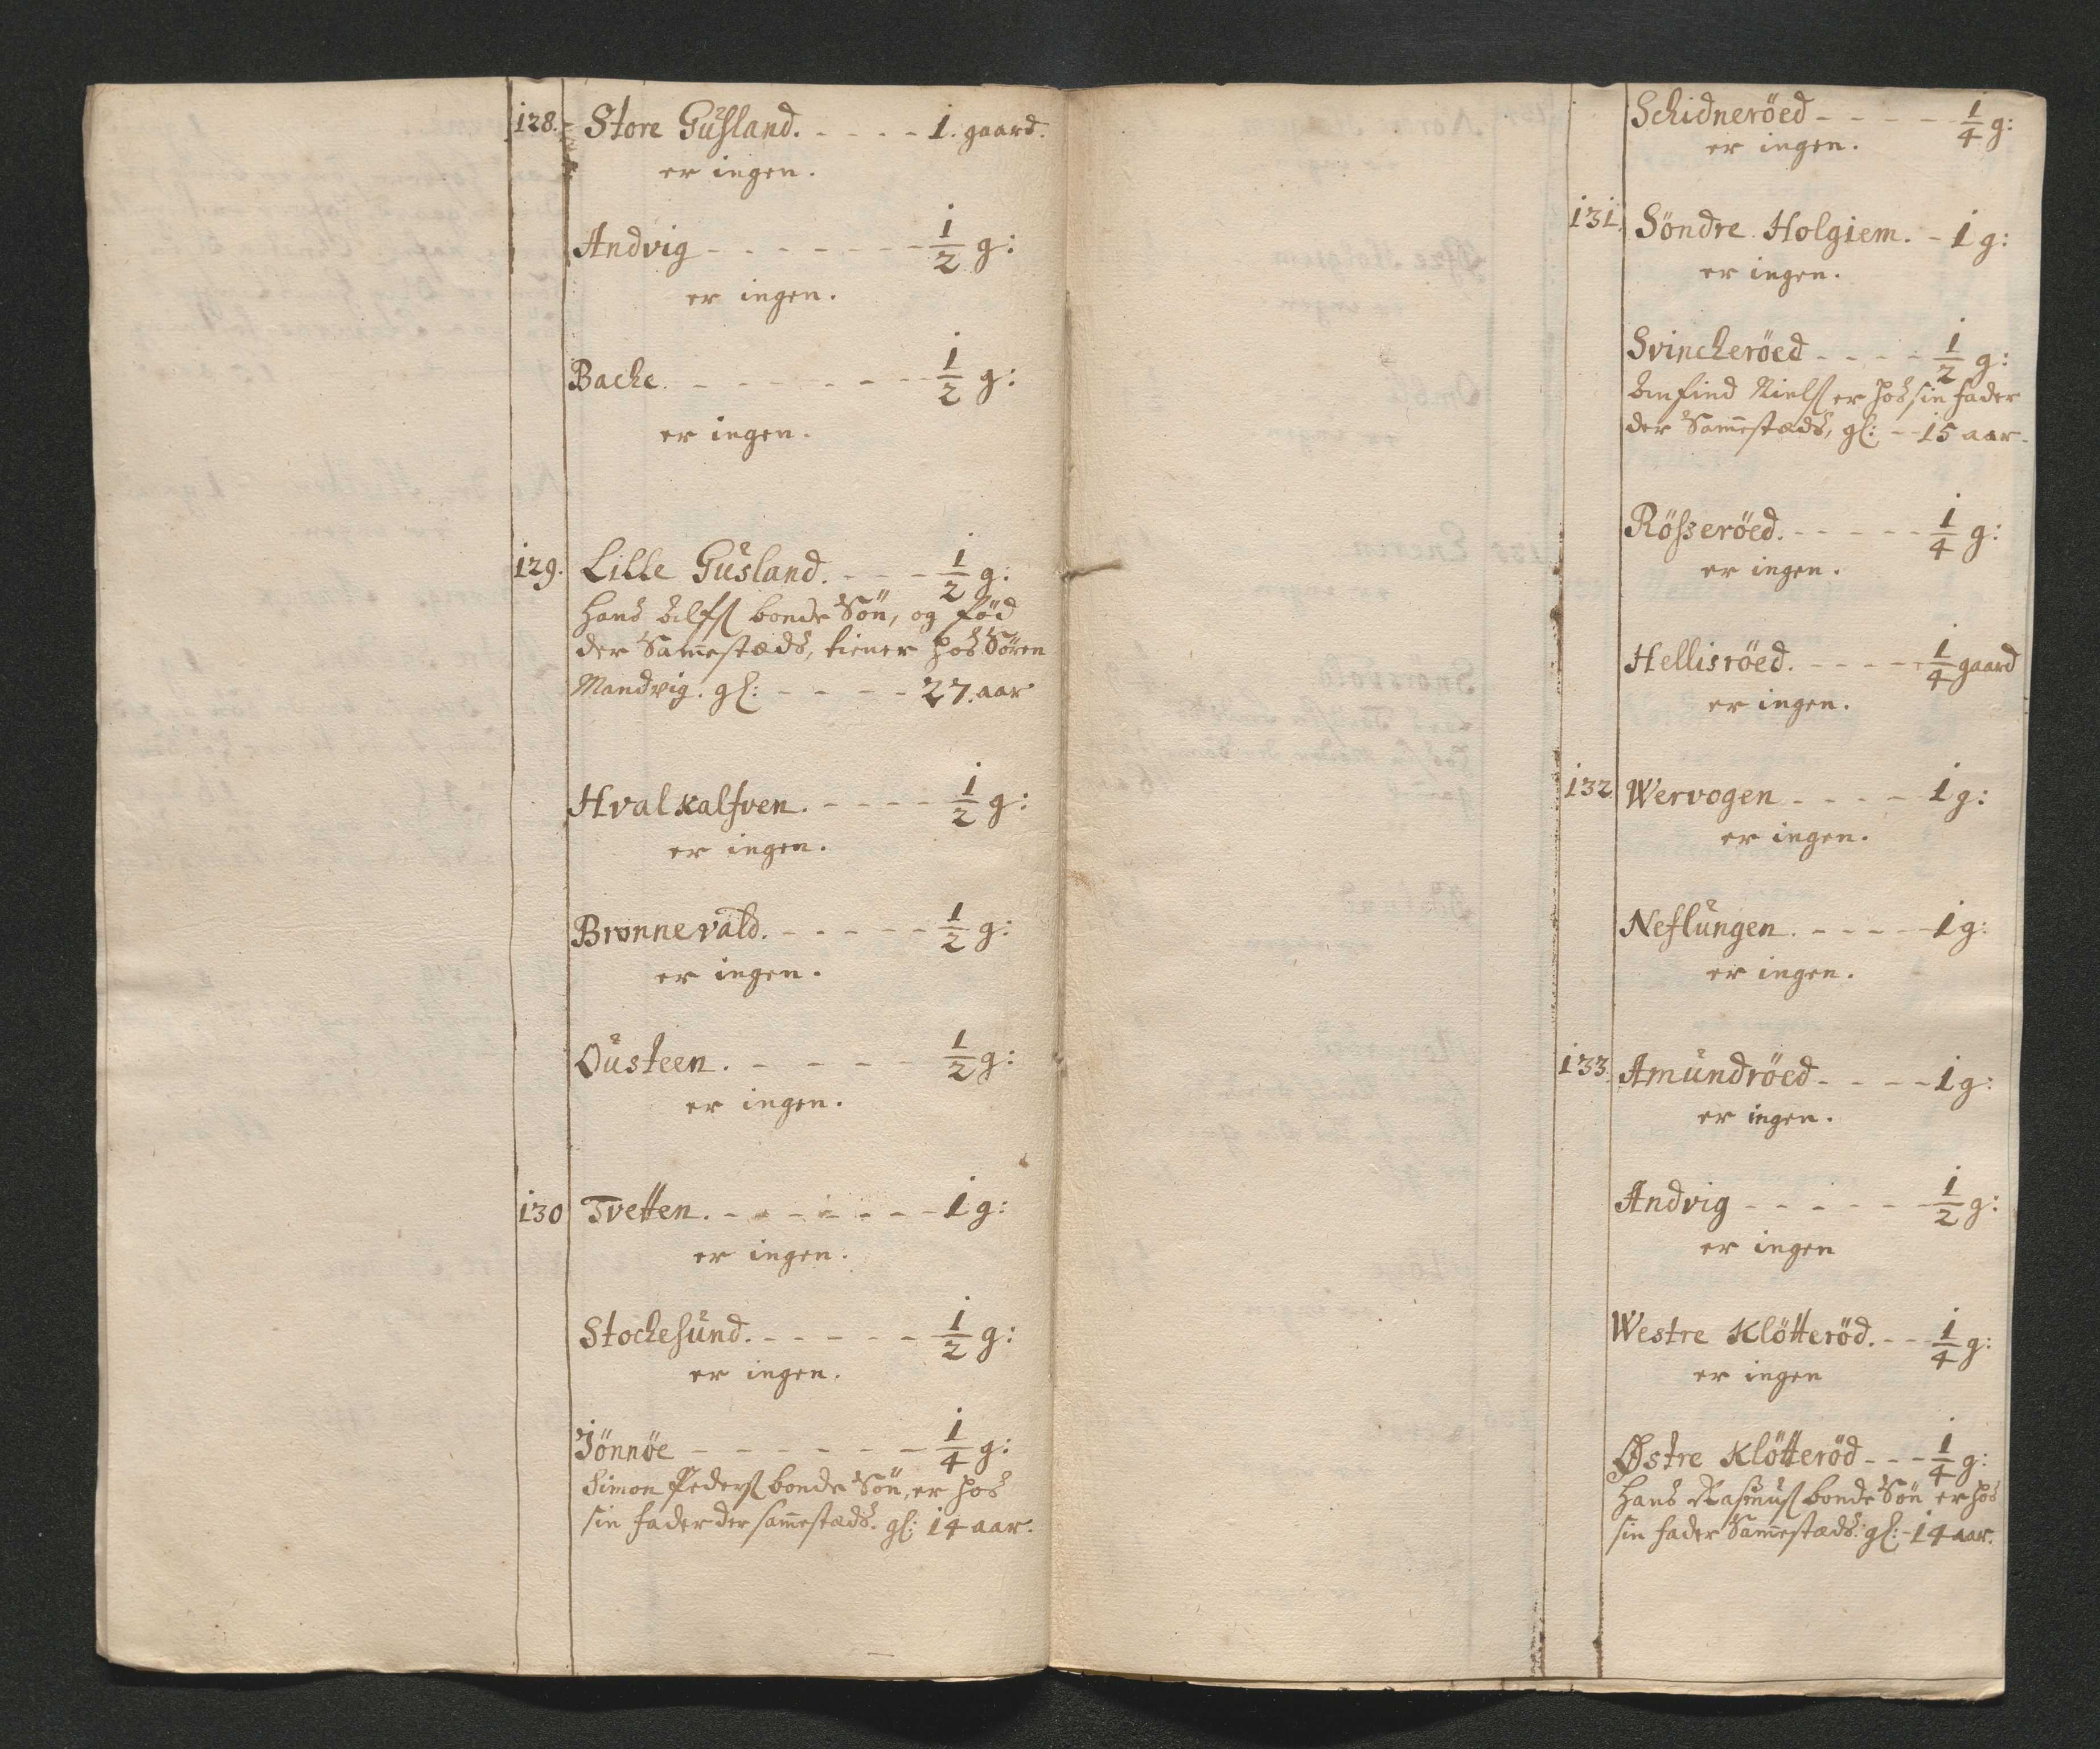 128. Store Gusland. - - - - 1. gaard.
er ingen.
Andvig - - - - - - - 1/2 g:
er ingen.
Backe. - - - - - - - 1/2 g:
er ingen.
129. Lille Gusland. - - - 1/2 g:
Hans bonde Sön, og född
der Sammestæds, tiener hos Sören
Mandvig. gl: - - - - - 27. aar
Hvalkalfven. - - - - 1/2 g:
er ingen.
Bronnevald. - - - - - 1/2 g:
er ingen.
Ousteen. - - - - 1/2 g:
er ingen.
130 Tvetten. - - - - - - - 1 g:
er ingen.
Stockesund. - - - - - 1/2 g:
er ingen.
Jönnöe - - - - - - - 1/4 g:
Simon Peders: bonde Sön, er hos
sin fader der sammestæds. gl: 14 aar.
Schidneröed - - - - - 1/4 g:
er ingen.
131. Söndre Holgiem. - 1 g:
er ingen.
Svinckeröed - - - - 1/2 g:
Niels: er hos sin fader
der Sammestæds, gl: - - 15 aar.
Rösseröed. - - - - - 1/4 g:
er ingen.
Hellisröed. - - - - - 1/4 gaard
er ingen.
132 Wervogen - - - - 1 g:
er ingen.
Neflungen. - - - - - 1 g:
er ingen.
133. Amundröed - - - - 1 g:
er ingen.
Andvig - - - - - - 1/2 g:
er ingen
Westre Klötteröd. - - 1/4 g:
er ingen
Østre Klötteröd - - - 1/4 g:
Hans Rasmus: bonde Sön er hos
sin fader Sammestæds. gl: - 14 aar.